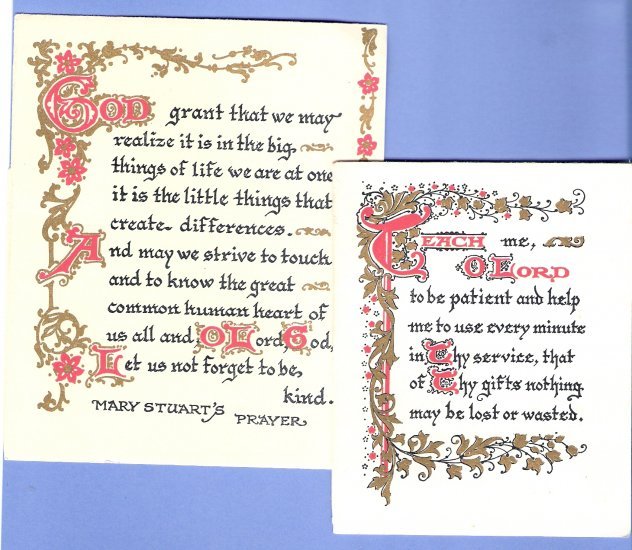 GOD grant that we may
realize it is in the big
things of life we are at one
it is the little things that
create differences.
And may we strive to touch
and to know the great
common human heart of
us all and, O Lord, God,
Let us not forget to be,
kind.
MARY STUART'S PRAYER
TEACH me,
O LORD
to be patient and help
me to use every minute
in Thy service, that
of Thy gifts nothing
may be lost or wasted.